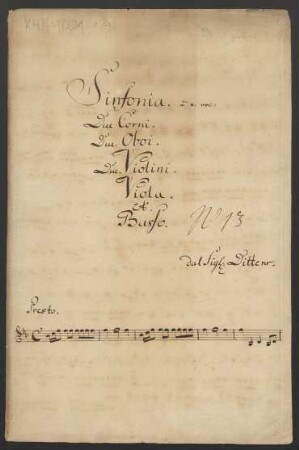 Sinfonia.
Due Corni.
Due Oboi.
Due Violini.
Viola.
et.
Basso.
No 13
dal Sigl. Ditters.
Presto.